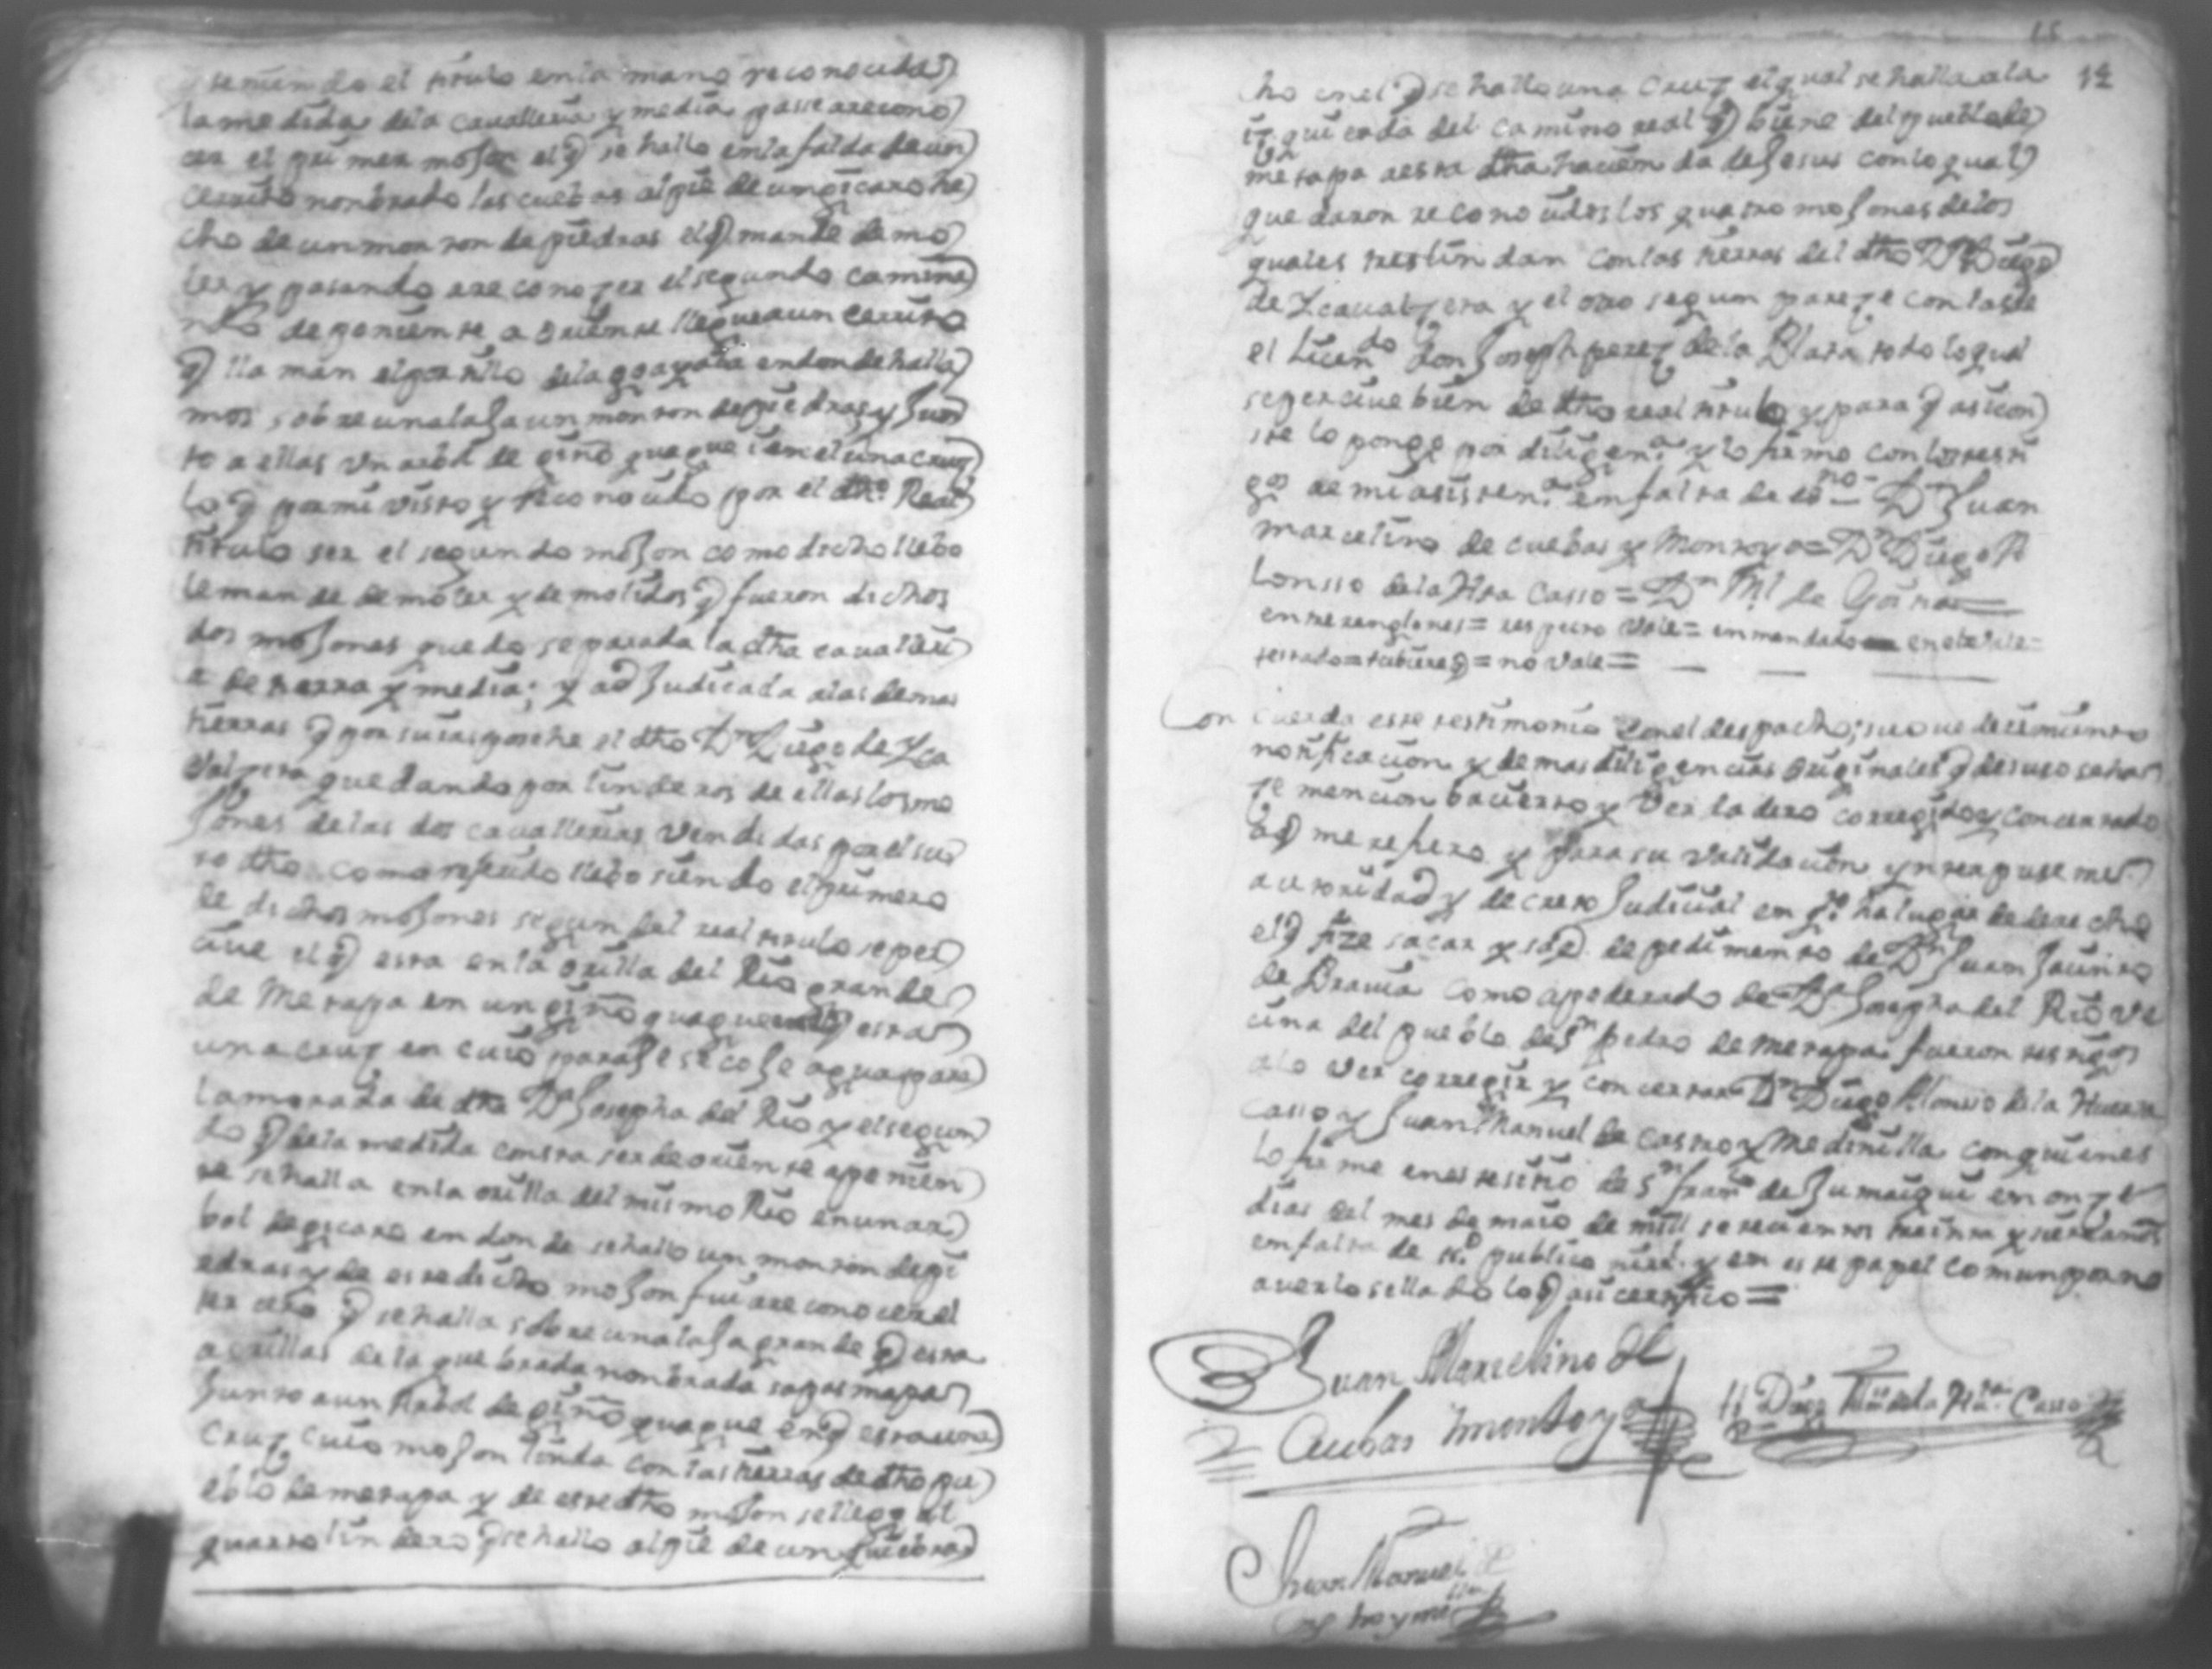 teniendo el titulo en la mano reconocida
la medida dela cavalleria y media passe arecono
cer el primer mojon el q se hallo en la falda de un
cerrito nombrado las cuebas al pie de un gicaro he
cho de un monton de piedras el q mande demo
ler y pasando a reconozer el segundo camina
ndo de poniente a oriente llegue a un cerrito
q llaman el portillo dela en donde halla
mos sobre una laja un monton de piedras y Jun
to a ellas Un arbol de giño quaque i en el una cruz
lo q por mi visto y reconocido por el dho Real
titulo ser el segundo mojon como dicho llebo
le mande demoler y demolidos q fueron dichos
dos mojones quedo separada la dha cavalleri
a de tierra y media; y adJudicada a las demas
tierras q por suias poshe el dho Dn Diego de Yca
Valzeta quedando por linderos de ellas los mo
Jones delas dos cavallerias Vendidas por el suso
dho como referido llebo siendo el primero
de dichos mojones segun del real titulo seper
cive el q esta en la orilla del Rio grande
de Metapa en un giño quaque esta
una cruz en cuio paraje se coje agua para
la morada de dha Da Josepha del Rio y el segun
do q dela medida consta ser de oriente aponien
te se halla en la orilla del mismo Rio en un ar
bol de gicaro en donde se hallo un monton de pi
edras y de este dicho mojon fui a reconocer el
tercero q se halla sobre una laja grande q esta
a orillas de la quebrada nombrada sapasmapa
Junto a un Arbol de giño quaque en q esta una
cruz cuio mojon linda con las tierras de dho pu
eblo de metapa y de este dho mojon se llego al
quarto lindero q se hallo al pie de un quiebra
15
14
cho en el q se hallo una cruz el qual se halla a la
izquierda del camino real q biene del pueblo de
metapa a esta dha hacienda de Jesus con lo qual
quedaron reconocidos los quatro mojones delos
quales tres lindan con las tierras del dho Dn Diego
de Ycavalzeta y el otro segun pareze con las de
el Licendo don Joseph perez de la Plata todo lo qual
se percive bien de dho real titulo y para q asi con
ste lo pongo por diligena y lo firmo con los testi
gos de mi asistena en falta de esno – Dn Juan
marcelino de cuebas y Montoya = Dn Diego A
lonsso dela Hta Casso = Dn Ml de Goi
entrerenglones = respeuto Vale = enmendado en ele Vale =
testado = tubiere q = no Vale =
Concuerda este testimonio con el despacho; suovedecimiento
notificacion y demas diligencias originales q de suso se ha
ze mencion ba cierto y Verdadero corregido y concertado
a q me refiero y para su validacion ynterpuse mi
autoridad y decreto Judicial en qto ha lugar de derecho
el q hize sacar y saq de pedimento de Dn Juan Jacinto
de Bravia como apoderado de Da Josepha del Rio ve
cina del pueblo de Sn pedro de metapa fueron testigos
alo ver corregir y concertar Dn Diego Alonsso dela Huerta
Casso y Juan Manuel de castro y Medinilla con quienes
lo firme en este sitio de Sn Franco de Jumaiqui en onze
dias del mes de maio de mill setecientos treinta y siete años
en falta de essno publico ni real y en este papel comun por no
averlo sellado lo q asi certifico =
Juan Marcelino de
Cuebas Montoya
Diego Also dela Hta Casso
Juan Manuel de